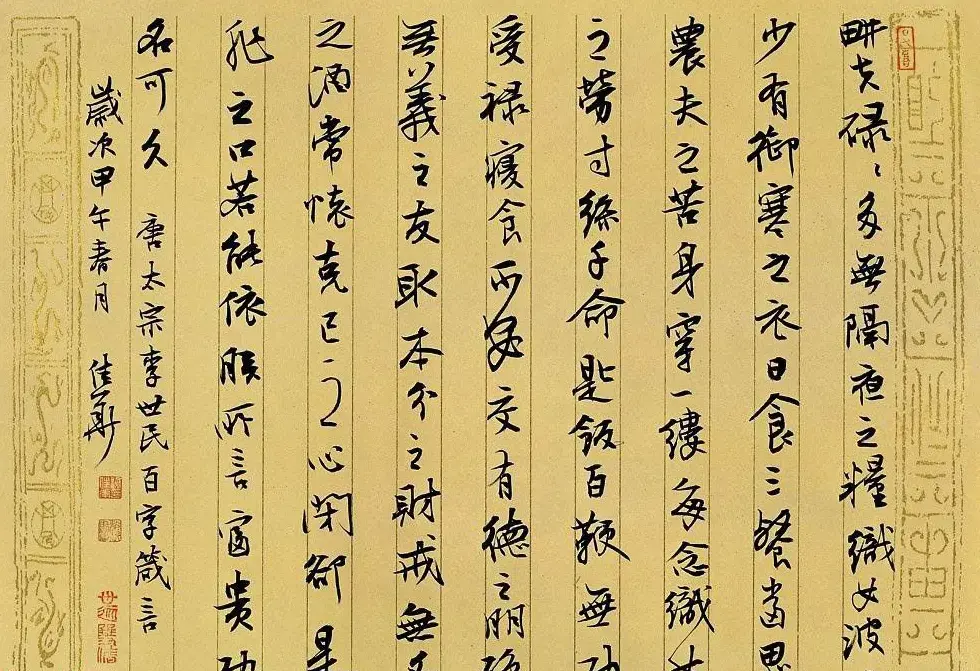 畊夫碌〻多無隔夜之糧織女波
少有御寒之衣日食三餐當思
農夫之苦身穿一縷每念織女
之勞寸絲千命匙飯百鞭無功
受祿寢食不安交有德之朋絕
無義之友取本分之財戒無
之酒常懷克己之心閉卻是
非之口若能依朕所言富貴功
名可久 唐太宗李世民百字箴言
歲次甲午春月 佳